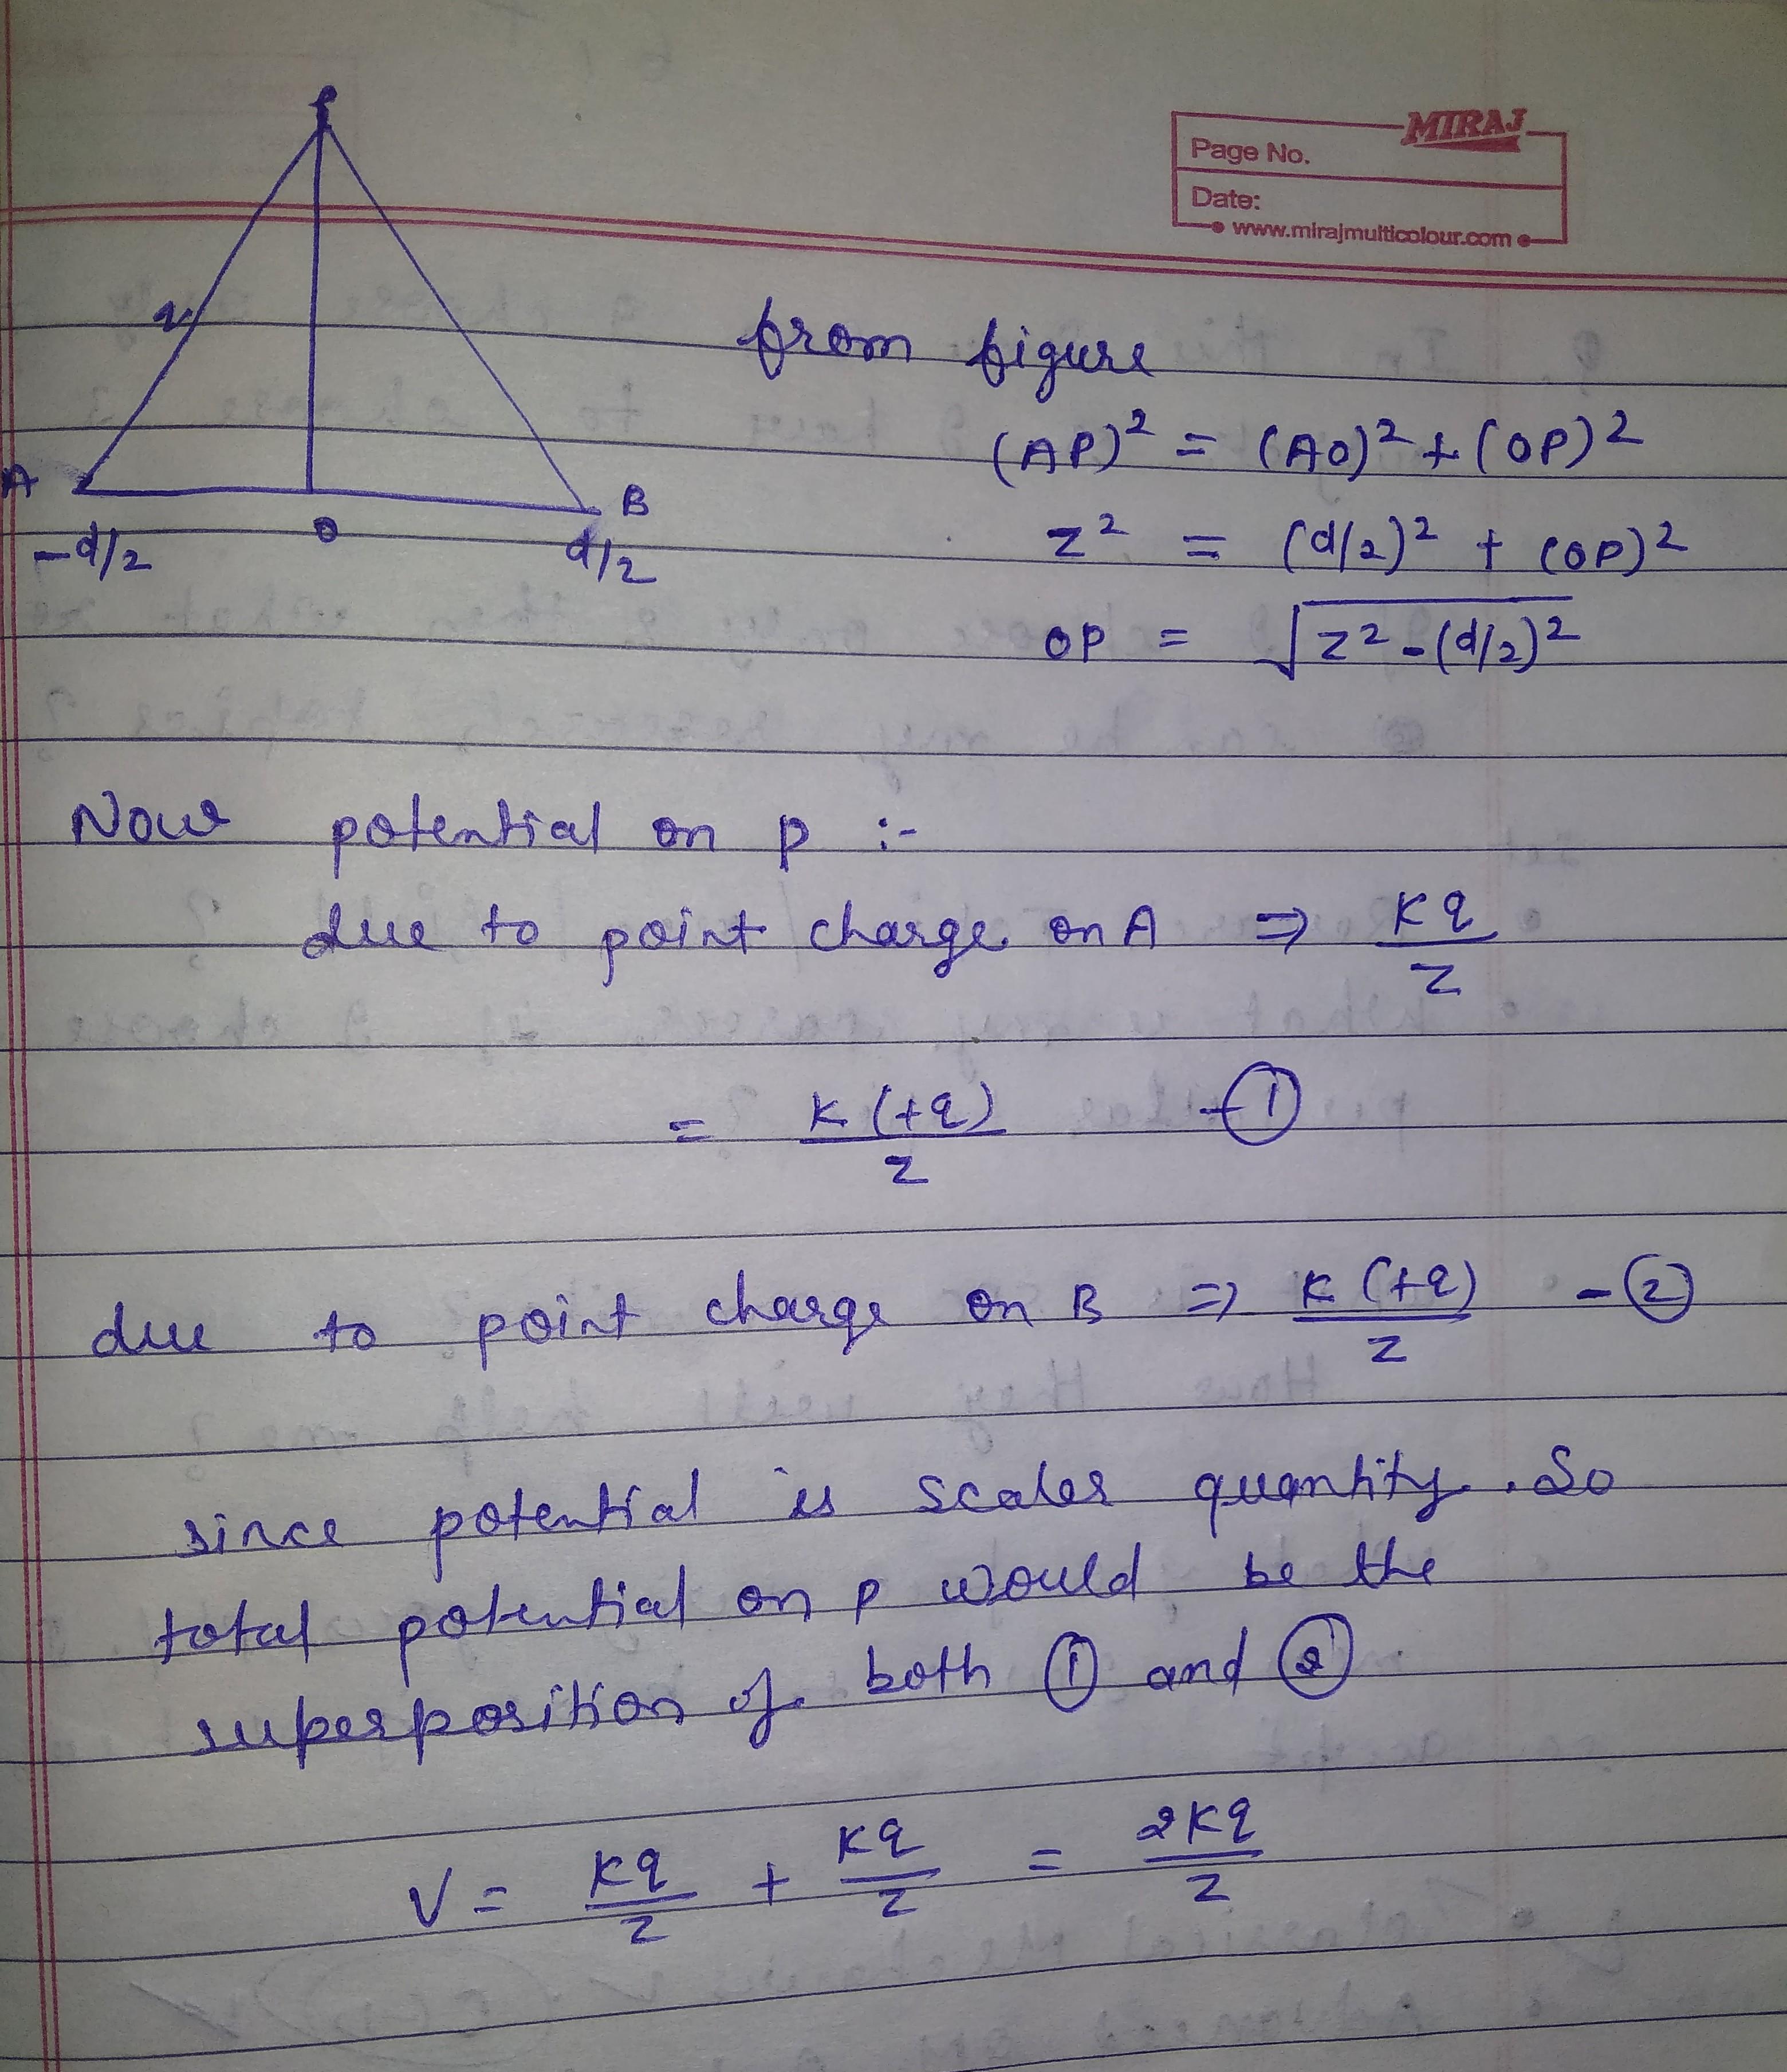 P
MIRAJ
Page No.
Date:
www.mirajmulticolour.com
from figure
(AP)² = (AO)² + (OP)²
A
B
O
-d/2
d/2
z² = (d/2)² + (OP)²
OP = √z² - (d/2)²
Now potential on p :-
due to point charge on A ⇒ Kq/z
= K(+q)/z - ①
due to point charge on B ⇒ K(+q)/z - ②
since potential is scaler quantity. So
total potential on p would be the
superposition of both ① and ②
V = Kq/z + Kq/z = 2Kq/z